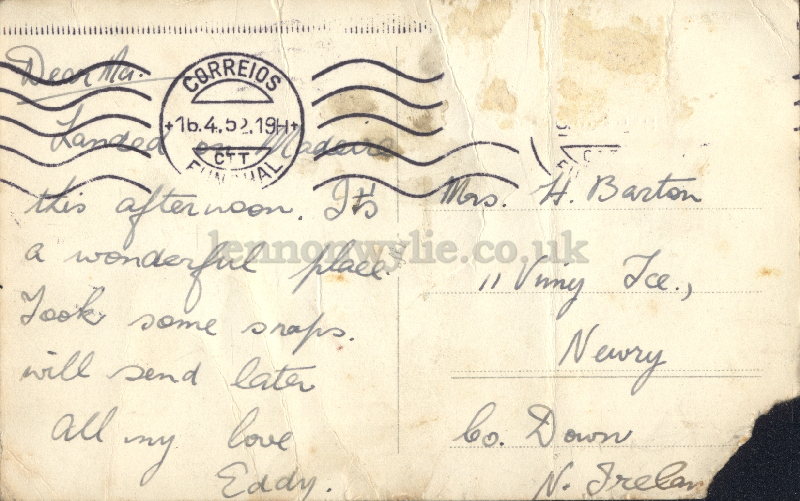 Dear Ma.
Landed on Madeira
this afternoon. It's
a wonderful place.
Took some snaps.
will send later
All my love
Eddy.
CORREIOS
16.4.52.19H
CTT
FUNCHAL
Mrs. H. Barton
11 Vimy Tce.,
Newry
Co. Down
N. Irelan
lennonwylie.co.uk